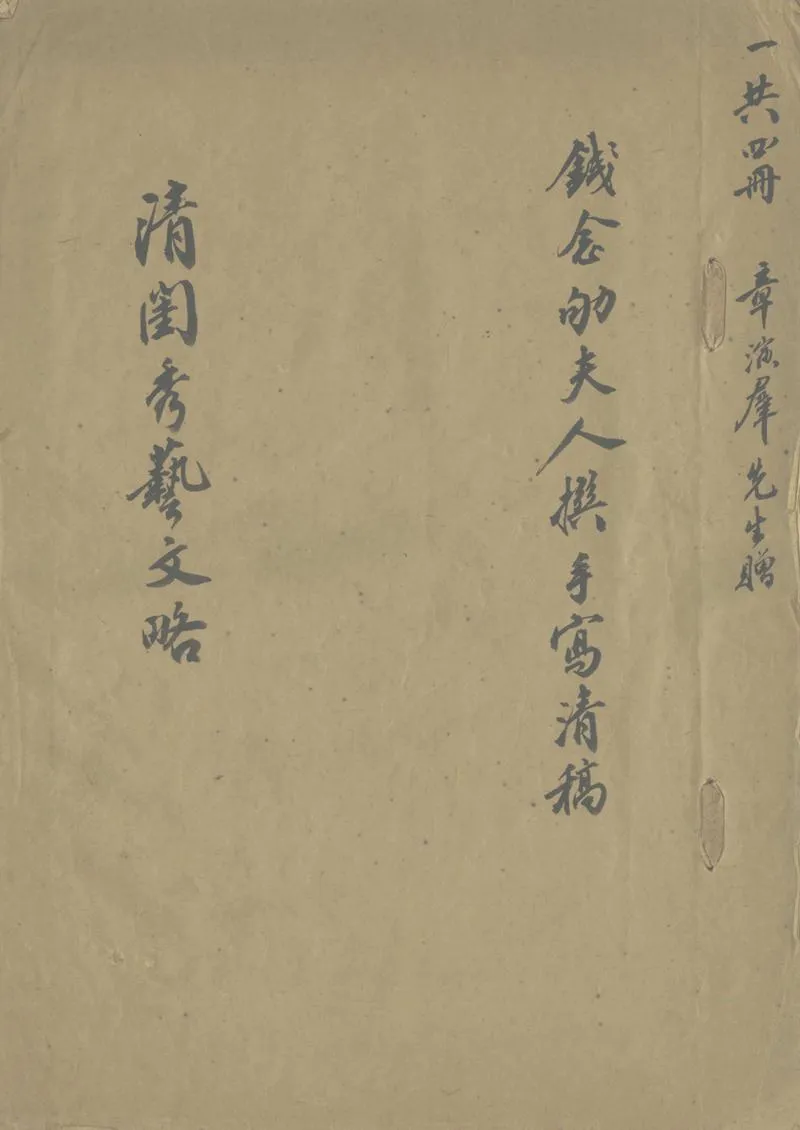 一共四冊 章演羣先生贈
錢念劬夫人撰手寫清稿
清閨秀藝文略